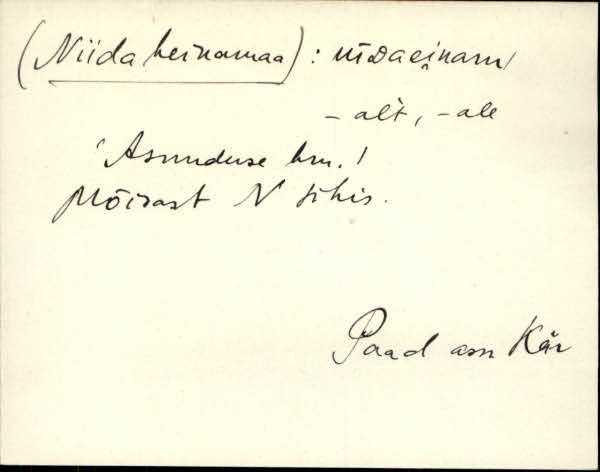 (Niida heinamaa) : niiᴅaei̯nam/
- alt̀, - ale
Asunduse hm. /
Mõisast N sihis.
Paad asn Kär